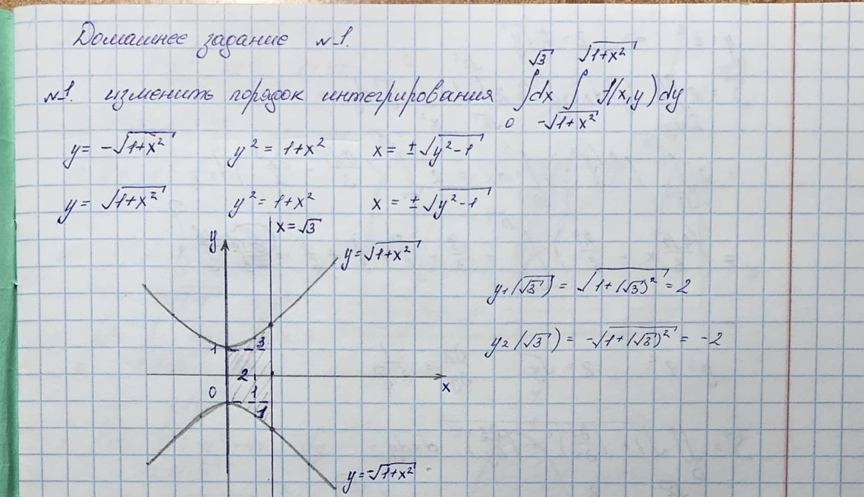 Домашнее задание №1.
№1. изменить порядок интегрирования ∫₀^√3 dx ∫_{-√(1+x²)}^{√(1+x²)} f(x,y)dy
y = -√(1+x²) y² = 1+x² x = ±√(y²-1)
y = √(1+x²) y² = 1+x² x = ±√(y²-1)
x=√3
y
y=√(1+x²)
y₁(√3) = √(1+(√3)²) = 2
y₂(√3) = -√(1+(√3)²) = -2
1
3
2
x
0
1
-1
y=-√(1+x²)